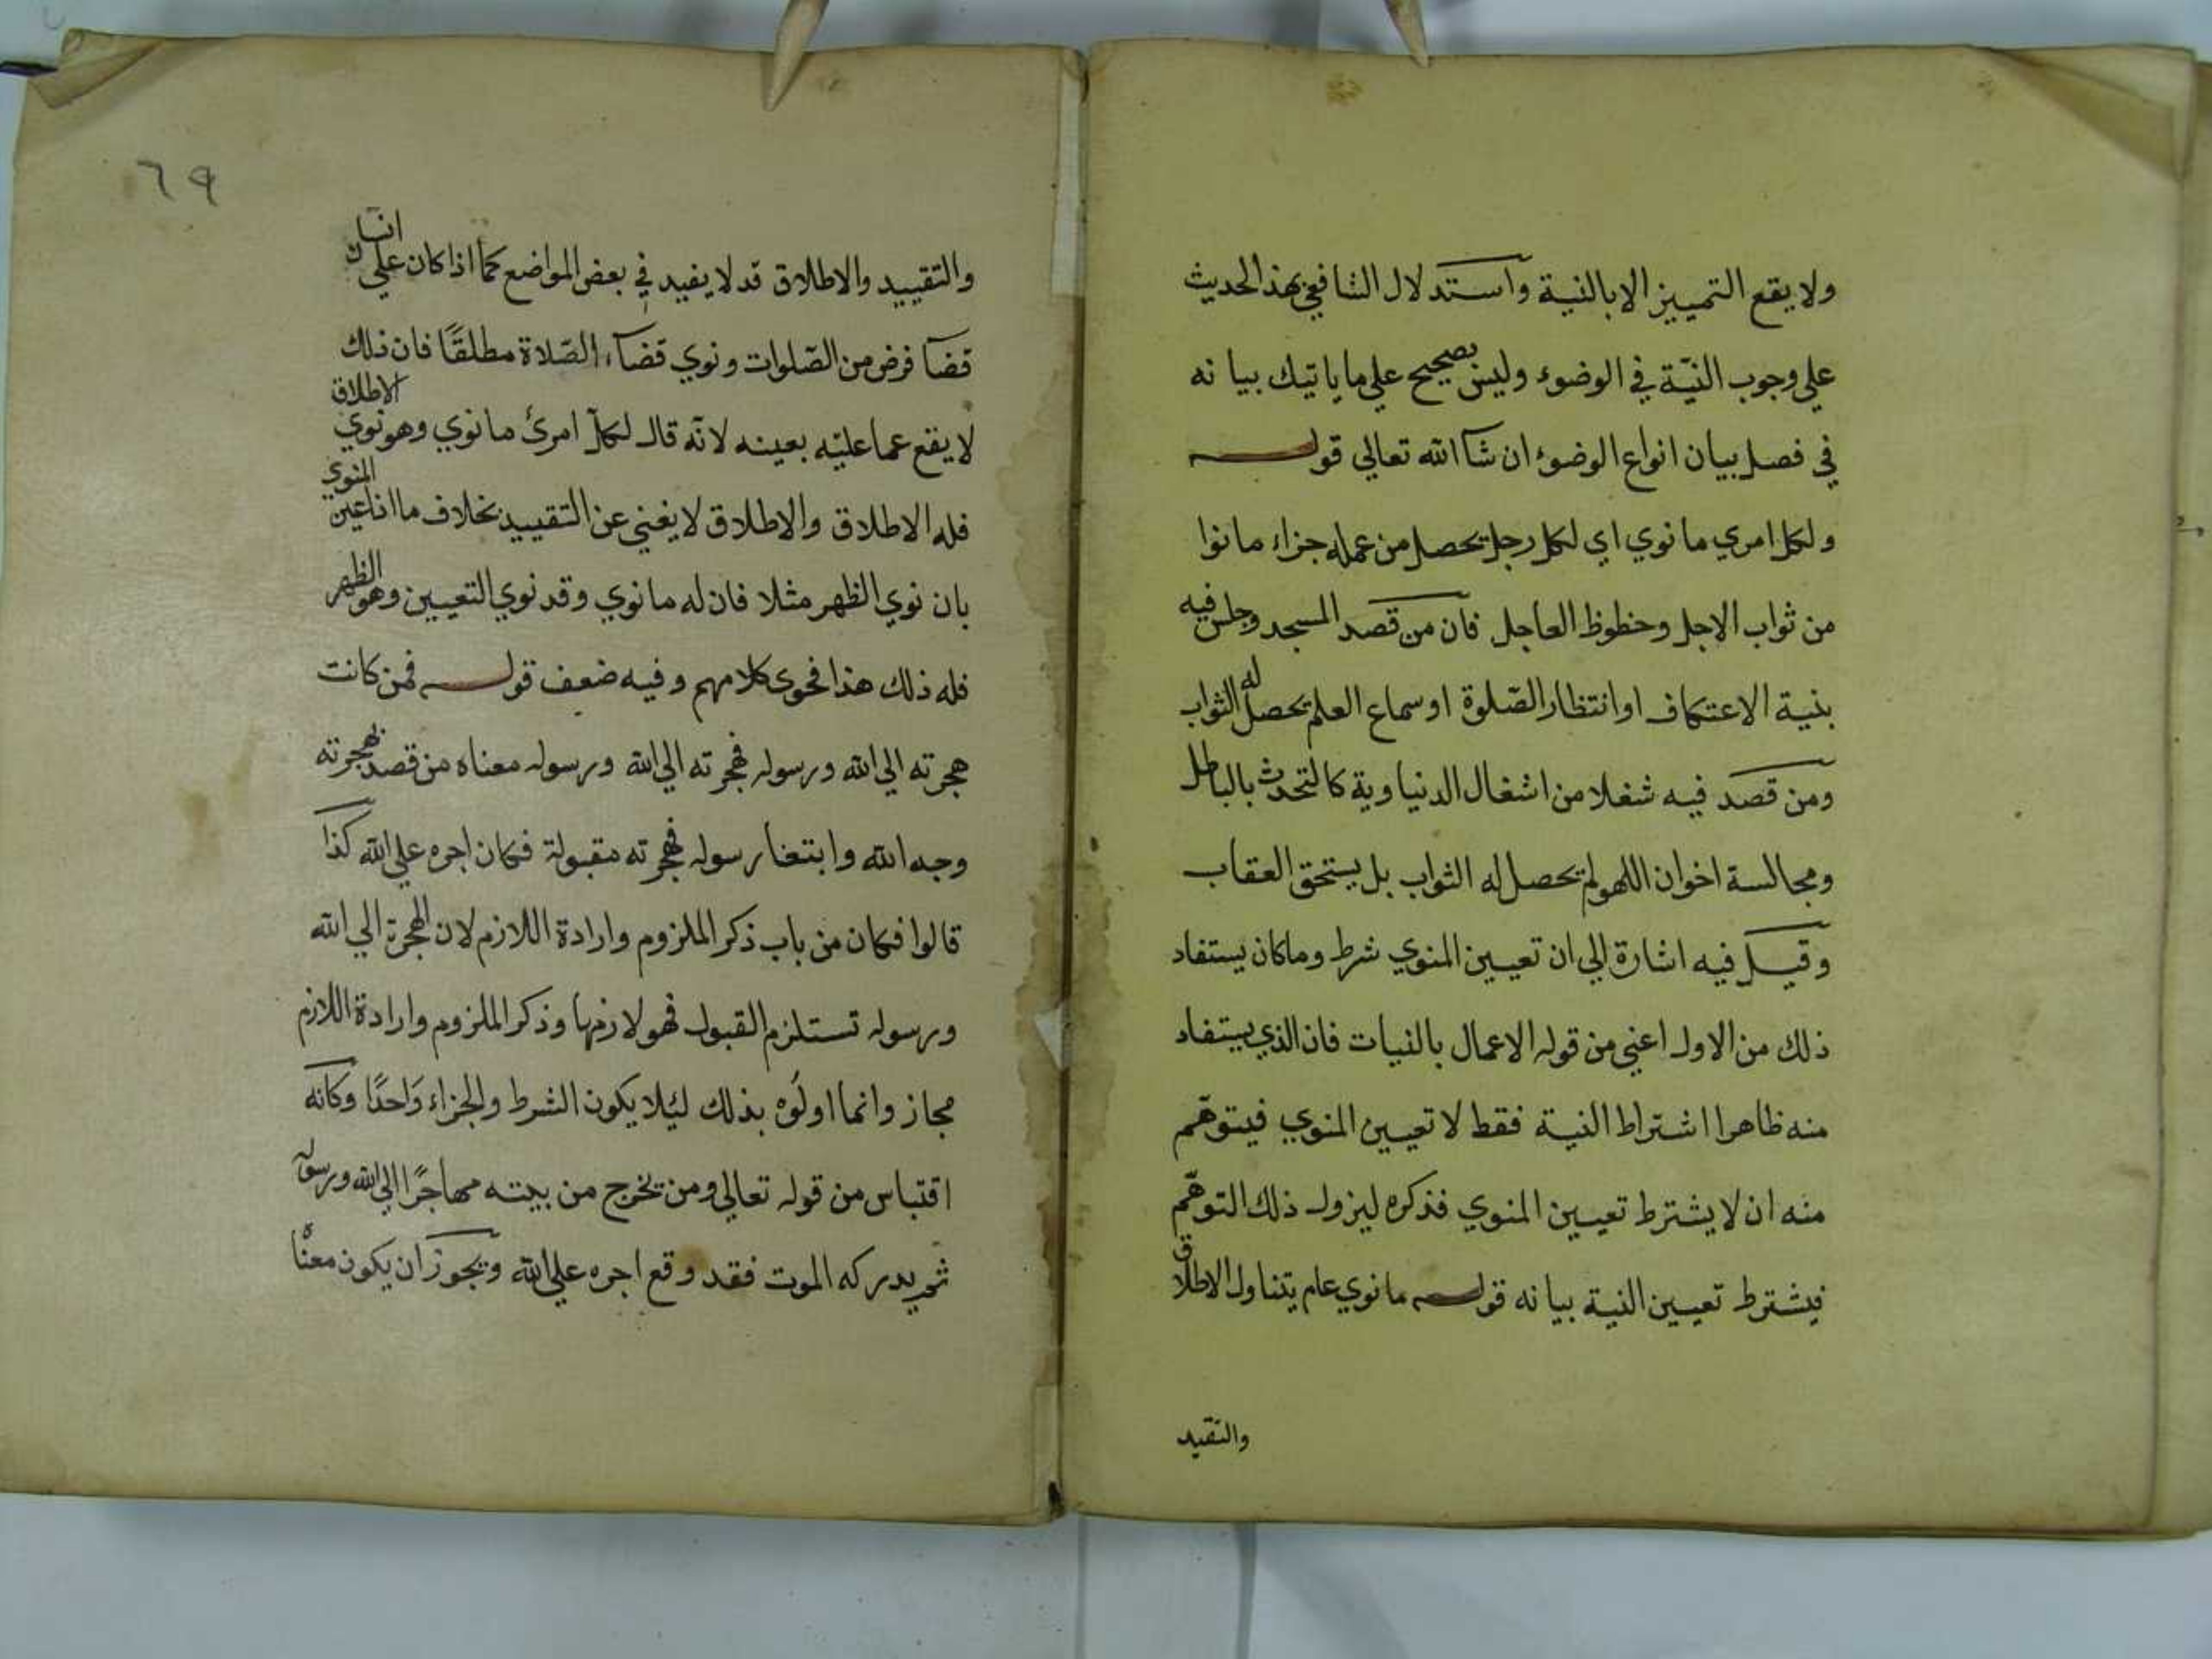 ولا يقع التمييز الا بالنية واستدلال الشافعي بهذ الحديث
علي وجوب النيّة في الوضوء وليس بصحيح علي ما ياتيك بيانه
في فصل بيان انواع الوضوء ان شآ الله تعالي قوله
ولكل امري ما نوي اي لكل رجل يحصل من عمله جزاء ما نوا
من ثواب الاجل وخطوظ العاجل فان من قصد المسجد وجلس فيه
بنية الاعتكاف او انتظار الصّلوة او سماع العلم يحصل له الثواب
ومن قصد فيه شغلا من اشغال الدنياوية كالتحدث بالباطل
ومجالسة اخوان اللهو لم يحصل له الثواب بل يستحق العقاب
وقيل فيه اشارة الي ان تعيين المنوي شرط وماكان يستفاد
ذلك من الاول اعني من قوله الاعمال بالنيات فان الذي يستفاد
منه ظاهرا اشتراط النية فقط لا تعيين المنوي فيتوهّم
منه ان لا يشترط تعيين المنوي فذكره ليزول ذلك التوهّم
فيشترط تعيين النية بيانه قوله ما نوي عام يتناول الاطلاق
والتقيد
٦٩
والتقييد والاطلاق قد لا يفيد في بعض المواضع كما اذا كان علي انسان
قضآ فرض من الصّلوات ونوي قضآء الصّلاة مطلقًا فان ذلك
لا يقع عما عليه بعينه لانّه قال لكل امرئ ما نوي وهو نوي الاطلاق
فله الاطلاق والاطلاق لا يغني عن التقييد بخلاف ما اذا عين المنوي
بان نوي الظهر مثلا فان له ما نوي وقد نوي التعيين وهو الظهر
فله ذلك هذا فحوي كلامهم وفيه ضعف قوله فمن كانت
هجرته الي الله ورسوله فهجرته الي الله ورسوله معناه من قصد بهجرته
وجه الله وابتغا رسوله فهجرته مقبولة فكان اجره علي الله كذا
قالوا فكان من باب ذكر الملزوم وارادة اللازم لان الهجرة الي الله
ورسوله تستلزم القبول فهو لازمها وذكر الملزوم وارادة اللازم
مجاز وانما اولوه بذلك ليلا يكون الشرط والجزاء وَاحدًا وكانه
اقتباس من قوله تعالي ومن يخرج من بيته مهاجرًا الي الله ورسوله
ثم يدركه الموت فقد وقع اجره علي الله ويجوز ان يكون معنًا